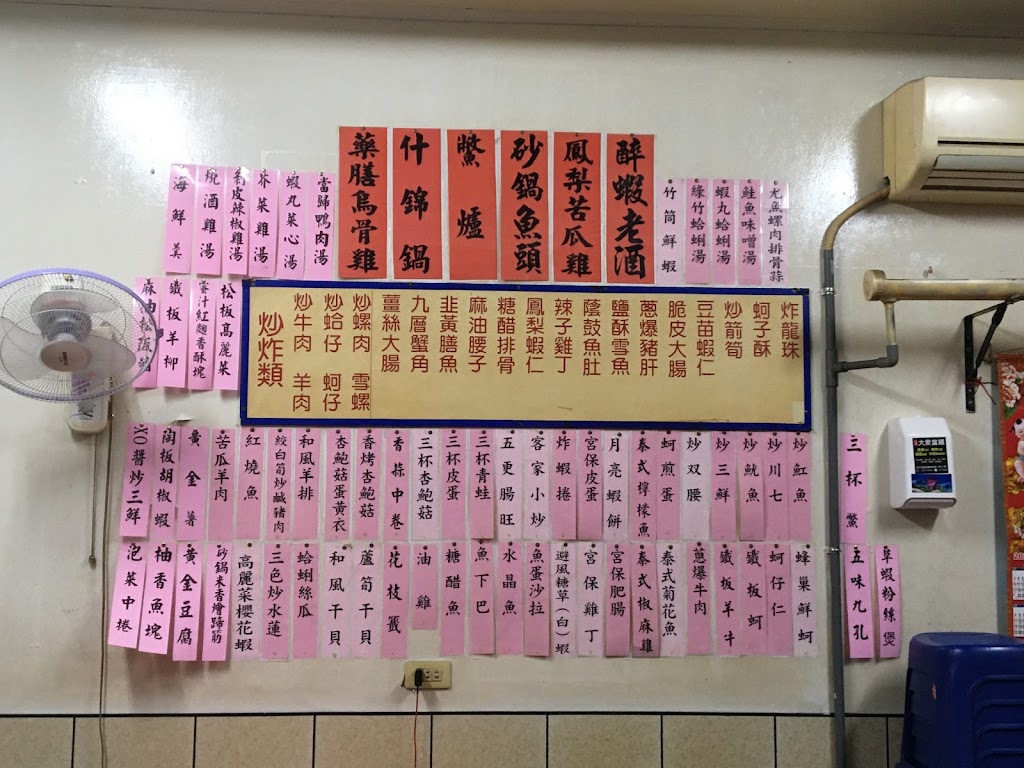 尤魚螺肉排骨蒜
鮭魚味噌湯
蝦丸蛤蜊湯
綠竹蛤蜊湯
竹筒鮮蝦
醉蝦老酒
鳳梨苦瓜雞
砂鍋魚頭
鱉爐
什錦鍋
藥膳烏骨雞
當歸鴨肉湯
蝦丸菜心湯
芥菜雞湯
剝皮辣椒雞湯
燒酒雞湯
海鮮羹
炸龍珠
蚵子酥
炒箭筍
豆苗蝦仁
脆皮大腸
蔥爆豬肝
鹽酥雪魚
蔭鼓魚肚
辣子雞丁
鳳梨蝦仁
糖醋排骨
麻油腰子
韭黃膳魚
九層蟹角
薑絲大腸
炒螺肉 雪螺
炒蛤仔 蚵仔
炒牛肉 羊肉
炒炸類
松板高麗菜
蜜汁紅麴香酥塊
鐵板羊柳
三杯鱉
炒魟魚
炒川七
炒魷魚
炒三鮮
炒双腰
蚵煎蛋
泰式檸檬魚
月亮蝦餅
宮保皮蛋
炸蝦捲
客家小炒
五更腸旺
三杯青蛙
三杯皮蛋
三杯杏鮑菇
香蒜中卷
香烤杏鮑菇
杏鮑菇蛋黃衣
和風羊排
絞白筍炒鹹豬肉
紅燒魚
苦瓜羊肉
黃金薯
陶板胡椒蝦
XO醬炒三鮮
草蝦粉絲煲
五味九孔
蜂巢鮮蚵
蚵仔仁
鐵板蚵
鐵板羊牛
蔥爆牛肉
泰式菊花魚
泰式椒麻雞
宮保肥腸
宮保雞丁
避風糖草(白)蝦
魚蛋沙拉
水晶魚
魚下巴
糖醋魚
油雞
花枝籤
蘆筍干貝
和風干貝
蛤蜊絲瓜
三色炒水蓮
高麗菜櫻花蝦
砂鍋米香燴蹄筋
黃金豆腐
柚香魚塊
泡菜中捲